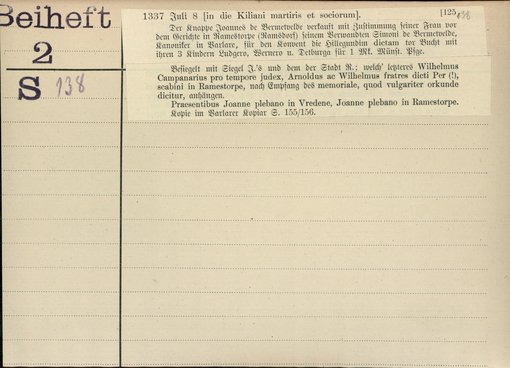 Beiheft
2
S 138
1337 Juli 8 [in die Kiliani martiris et sociorum]. [125
138
Der Knappe Joannes de Vernetvelde verkauft mit Zustimmung seiner Frau vor
dem Gerichte in Ramestorpe (Ramsdorf) seinem Verwandten Simoni de Vernetvelde,
Kanoniker in Varlare, für den Konvent die Hillegundim dictam tor Bucht mit
ihren 3 Kindern Ludgero, Wernero u. Detburga für 1 Mk. Münst. Pfge.
Besiegelt mit Siegel J.'s und dem der Stadt R.; welch' letzteres Wilhelmus
Campanarius pro tempore judex, Arnoldus ac Wilhelmus fratres dicti Per (!),
scabini in Ramestorpe, nach Empfang des memoriale, quod vulgariter orkunde
dicitur, anhängen.
Praesentibus Joanne plebano in Vredene, Joanne plebano in Ramestorpe.
Kopie im Varlarer Kopiar S. 155/156.